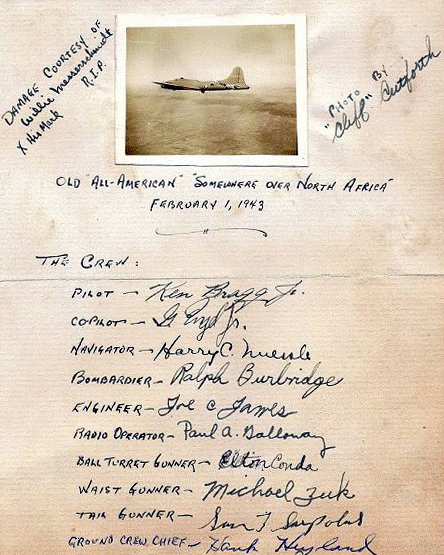 DAMAGE COURTESY OF
Willie Messerschmidt
X His Mark R.I.P.
"PHOTO BY
Cliff" Cutforth
OLD "ALL-AMERICAN" "SOMEWHERE OVER NORTH AFRICA"
FEBRUARY 1, 1943
THE CREW:
PILOT - Ken Bragg Jr.
COPILOT - G Jr.
NAVIGATOR - Harry C. Nuessle
BOMBARDIER - Ralph Burbridge
ENGINEER - Joe C James
RADIO OPERATOR - Paul A. Galloway
BALL TURRET GUNNER - Elton Conda
WAIST GUNNER - Michael Zuk
TAIL GUNNER - Sam T Sarpolus
GROUND CREW CHIEF - Hank Hyland